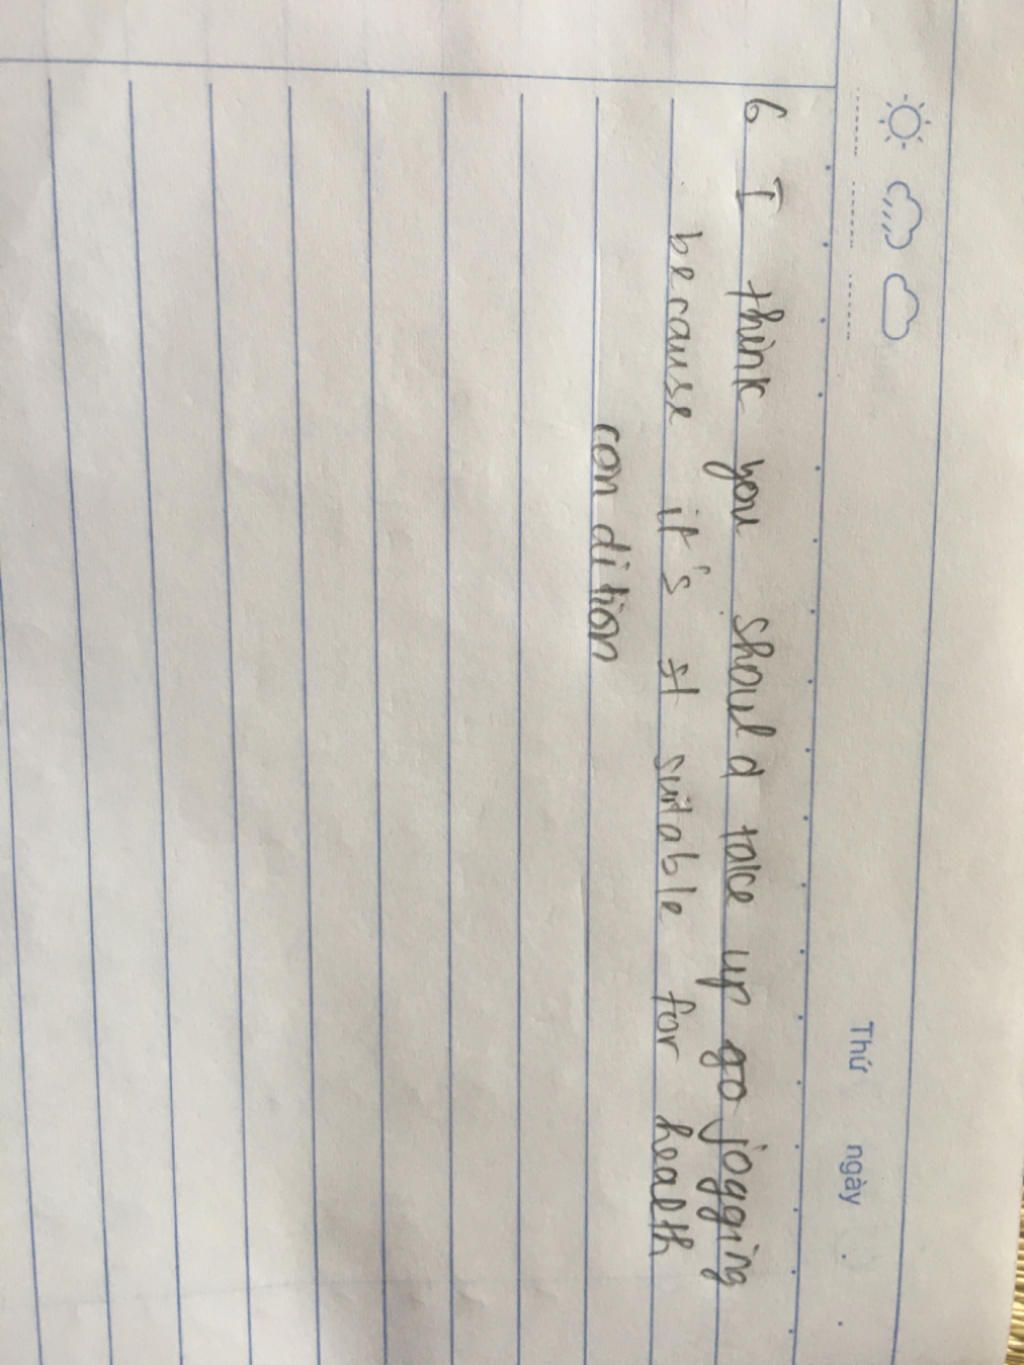 Thứ ngày
6 I think you should take up go jogging
because it's st suitable for health
condition